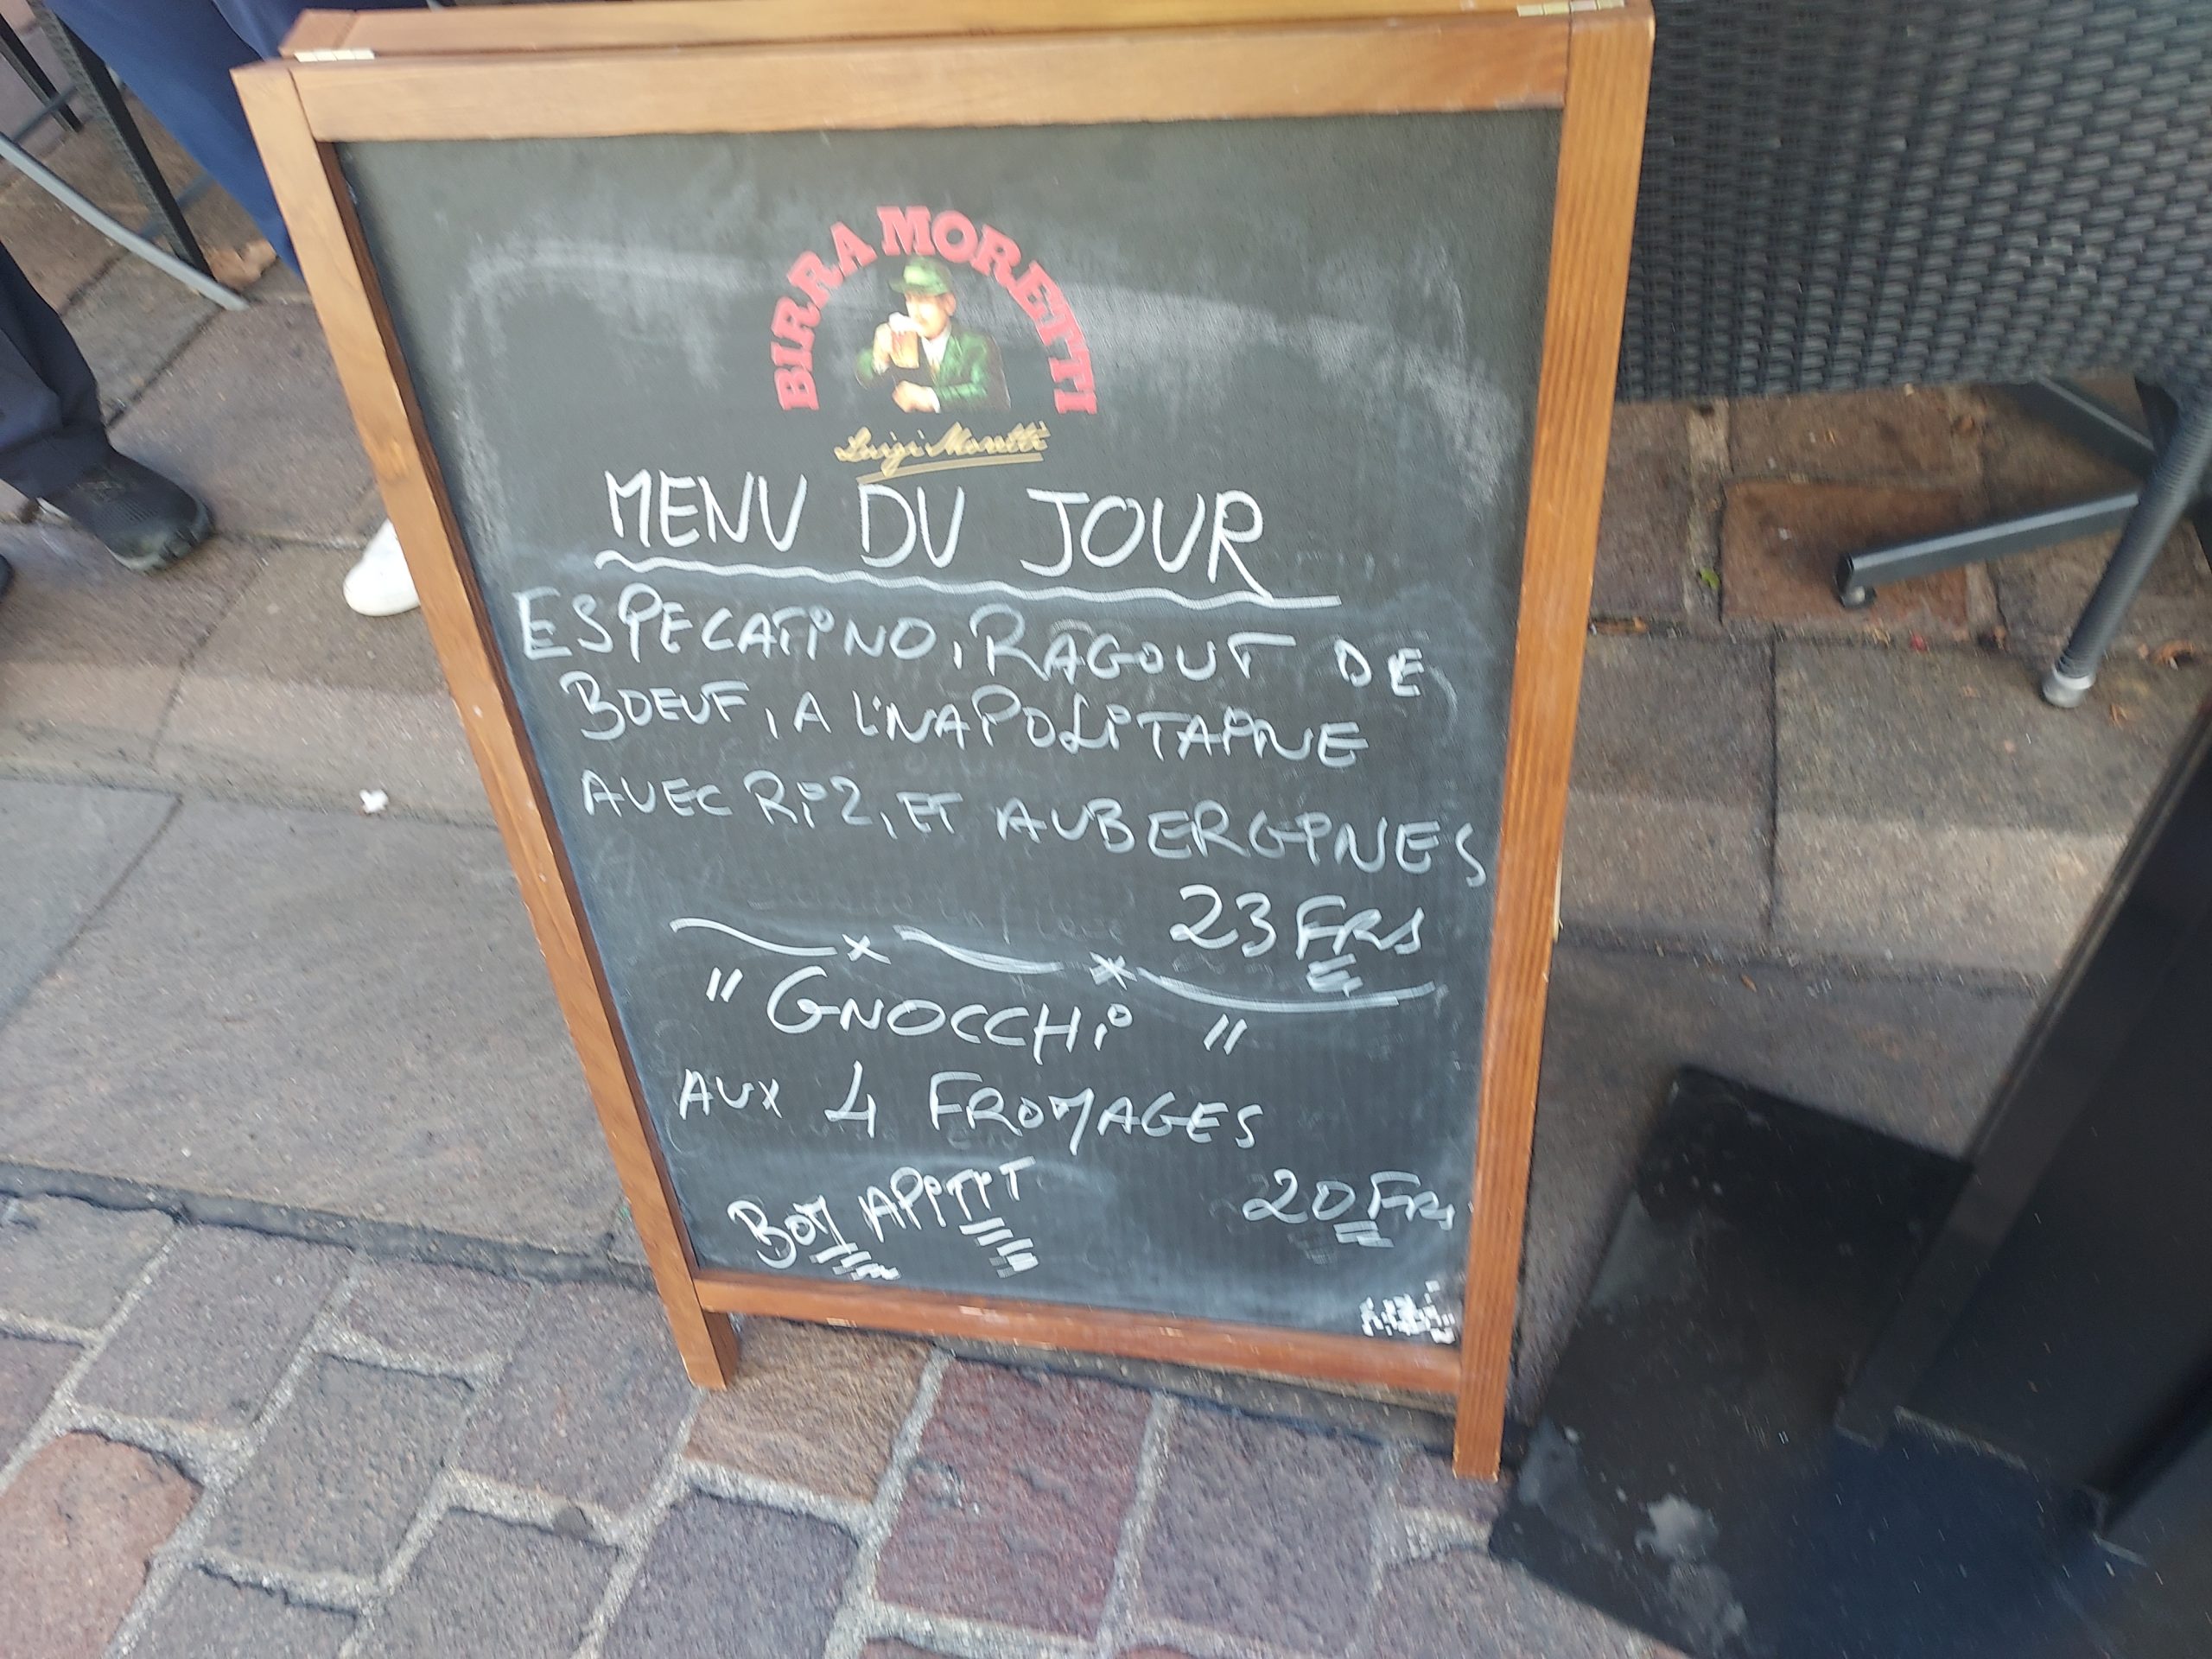 BIRRA MORETTI
Luigi Moretti
MENU DU JOUR
ESPECATINO, RAGOUT DE
BOEUF, A L'NAPOLITAINE
AVEC RIZ, ET AUBERGINES
23 FRS
"GNOCCHI"
AUX 4 FROMAGES
BON APITIT
20 FRS